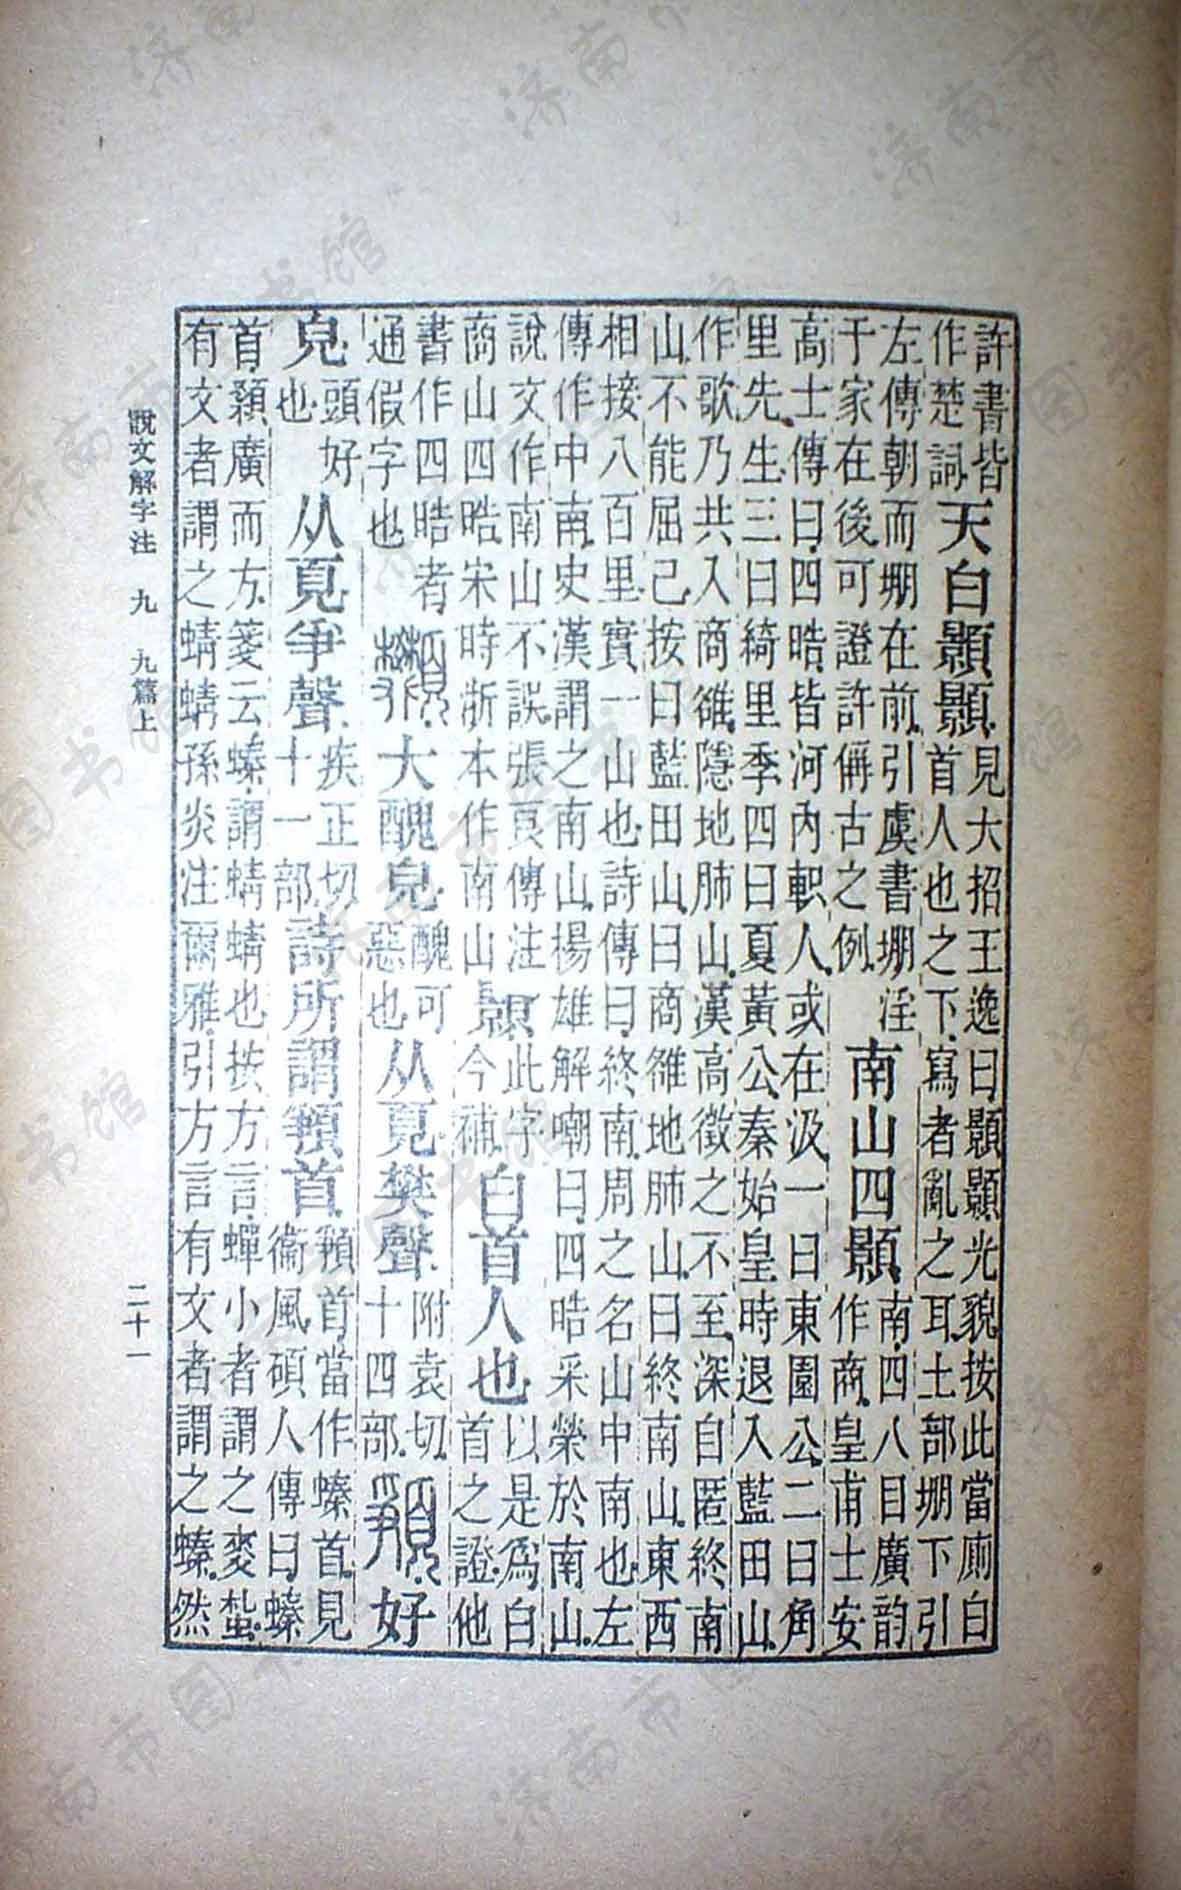 許書皆作楚詞天白顥顥見大招王逸曰顥顥光貌按此當廁白首人也之下寫者亂之耳土部堋下引
左傳朝而堋在前引虞書堋淫于家在後可證許偁古之例南山四顥南四八目廣韵作商皇甫士安
高士傳曰四晧皆河內軹人或在汲一曰東園公二曰角
里先生三曰綺里季四曰夏黃公秦始皇時退入藍田山
作歌乃共入商雒隱地肺山漢高徵之不至深自匿終南
山不能屈己按曰藍田山曰商雒地肺山曰終南山東西
相接八百里實一山也詩傳曰終南周之名山中南也左
傳作中南史漢謂之南山揚雄解嘲曰四晧采榮於南山
說文作南山不誤張良傳注商山四晧宋時浙本作南山顥此字今補白首人也以是爲白首之證他
書作四晧者通假字也䫶大醜皃醜可惡也从頁樊聲附袁切十四部䫖好
皃頭好也从頁爭聲疾正切十一部詩所謂䫖首䫖首當作螓首見衞風碩人傳曰螓
首顙廣而方箋云螓謂蜻蜻也按方言蟬小者謂之麥蚻
有文者謂之蜻蜻孫炎注爾雅引方言有文者謂之螓然
說文解字注 九 九篇上 二十一
济南市图书馆